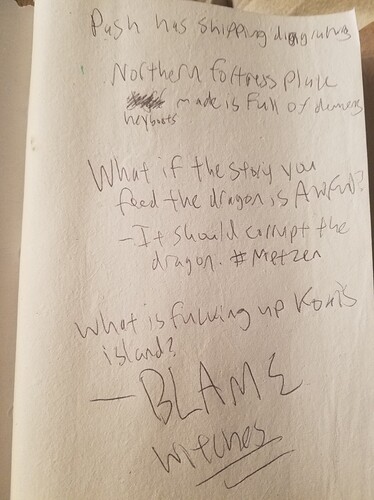 Push has shipping diagrams
Northern fortress Plak
made is full of demons
heyboats
What if the story you
feed the dragon is AWFUL?
- It should corrupt the
dragon. #Metzen
What is fucking up Kom's
island?
- BLAME
witches